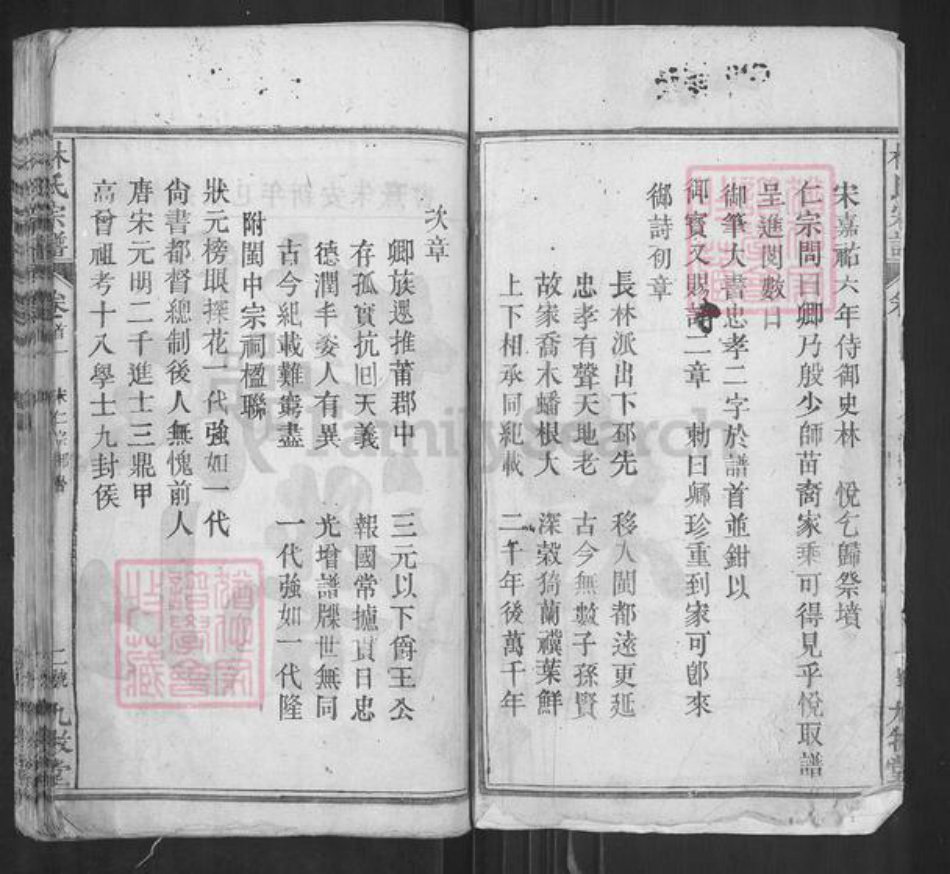 宋嘉祐六年侍御史林　悅乞歸祭墳
仁宗問曰卿乃殷少師苗裔家乘可得見乎悅取譜
呈進閱數日
御筆大書忠孝二字於譜首並鉗以
御寶又賜詩二章　勅曰卿珍重到家可卽來
御詩初章
長林派出下邳先　移入閩都遠更延
忠孝有聲天地老　古今無數子孫賢
故家喬木蟠根大　深穀猗蘭襈葉鮮
上下相承同紀載　二千年後萬千年
次章
卿族還推莆郡中　三元以下爵王公
存孤實抗囘天義　報國常攄貫日忠
德潤丰姿人有異　光增譜牒世無同
古今紀載難窮盡　一代強如一代隆
附閩中宗祠楹聯
狀元榜眼探花一代強如一代
尙書都督總制後人無愧前人
唐宋元明二千進士三鼎甲
高曾祖考十八學士九封侯
林氏宗譜
卷首一
宋仁宗御書
二號
九牧堂
林氏宗譜
九牧堂
FamilySearch